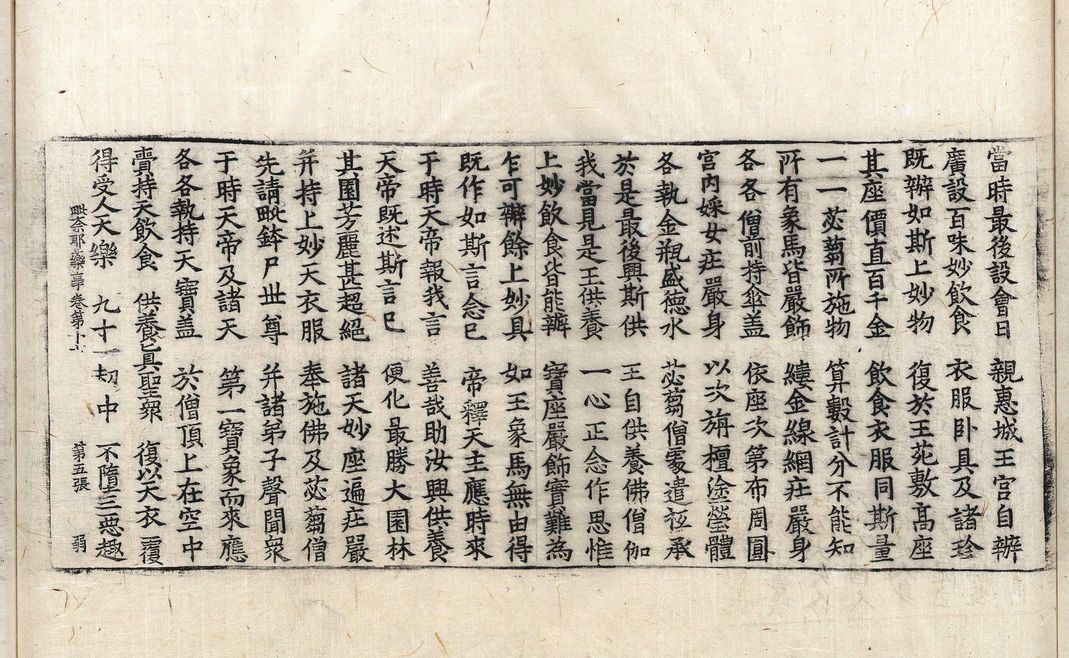 當時最後設會日 親惠城王宮自辦
廣設百味妙飲食 衣服卧具及諸珍
既辦如斯上妙物 復於王苑敷髙座
其座價直百千金 飲食衣服同斯量
一一苾蒭所施物 算數計分不能知
所有象馬皆嚴飾 縷金線網莊嚴身
各各僧前持傘盖 依座次第布周圓
宮内婇女莊嚴身 以次旃檀塗瑩體
各執金瓶盛德水 苾蒭僧處遣祗承
於是最後興斯供 王自供養佛僧伽
我當見是王供養 一心正念作思惟
上妙飲食皆能辦 寶座嚴飾實難為
乍可辦餘上妙具 如王象馬無由得
既作如斯言念已 帝釋天主應時來
于時天帝報我言 善哉助汝興供養
天帝既述斯言已 便化最勝大園林
其園芳麗甚超絕 諸天妙座遍莊嚴
并持上妙天衣服 奉施佛及苾蒭僧
先請毗鉢尸世尊 并諸弟子聲聞衆
于時天帝及諸天 第一寶象而來應
各各執持天寶盖 於僧頂上在空中
賷持天飲食 供養真聖衆 復以天衣覆
得受人天樂 九十一刼中 不墮三惡趣
毗奈耶藥事卷第十六 第五張 弱